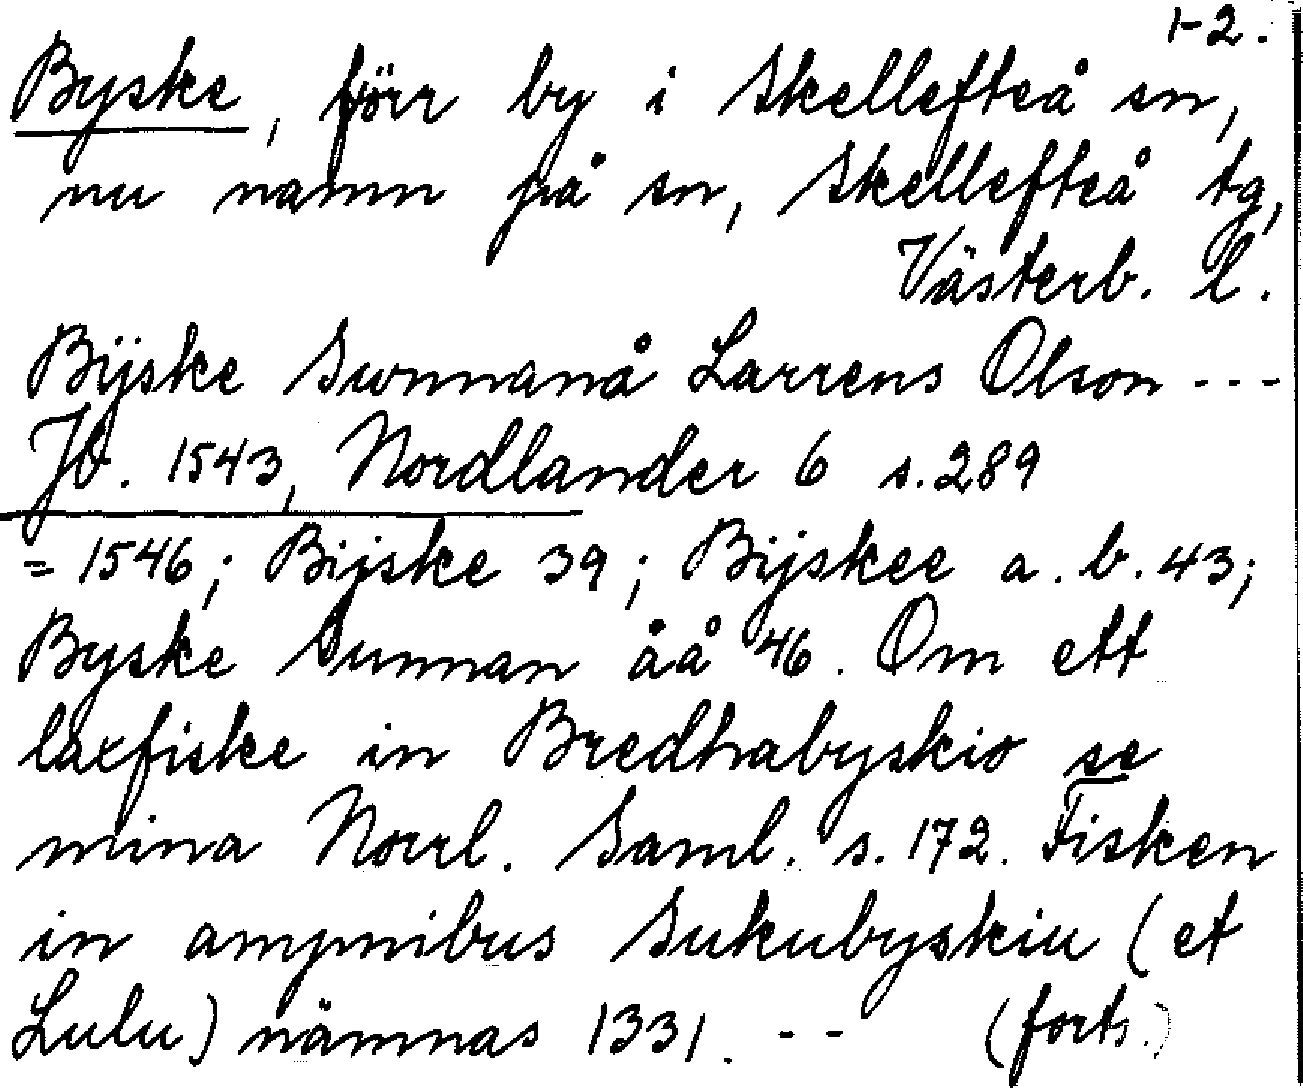 1-2.
Byske, förr by i Skellefteå sn,
nu namn på sn, Skellefteå tg,
Västerb. l.
Bijske Swnnanå Larrens Olson ---
Jb. 1543, Nordlander 6 s. 289
= 1546; Bijske 39; Bijskee a. b. 43;
Byske Sunnan åå 46. Om ett
laxfiske in Bredhabyskio se
mina Norrl. Saml. s. 172. Fisken
in ampnibus Sukubyskiu (et
Lulu) nämnas 1331. -- (forts.)